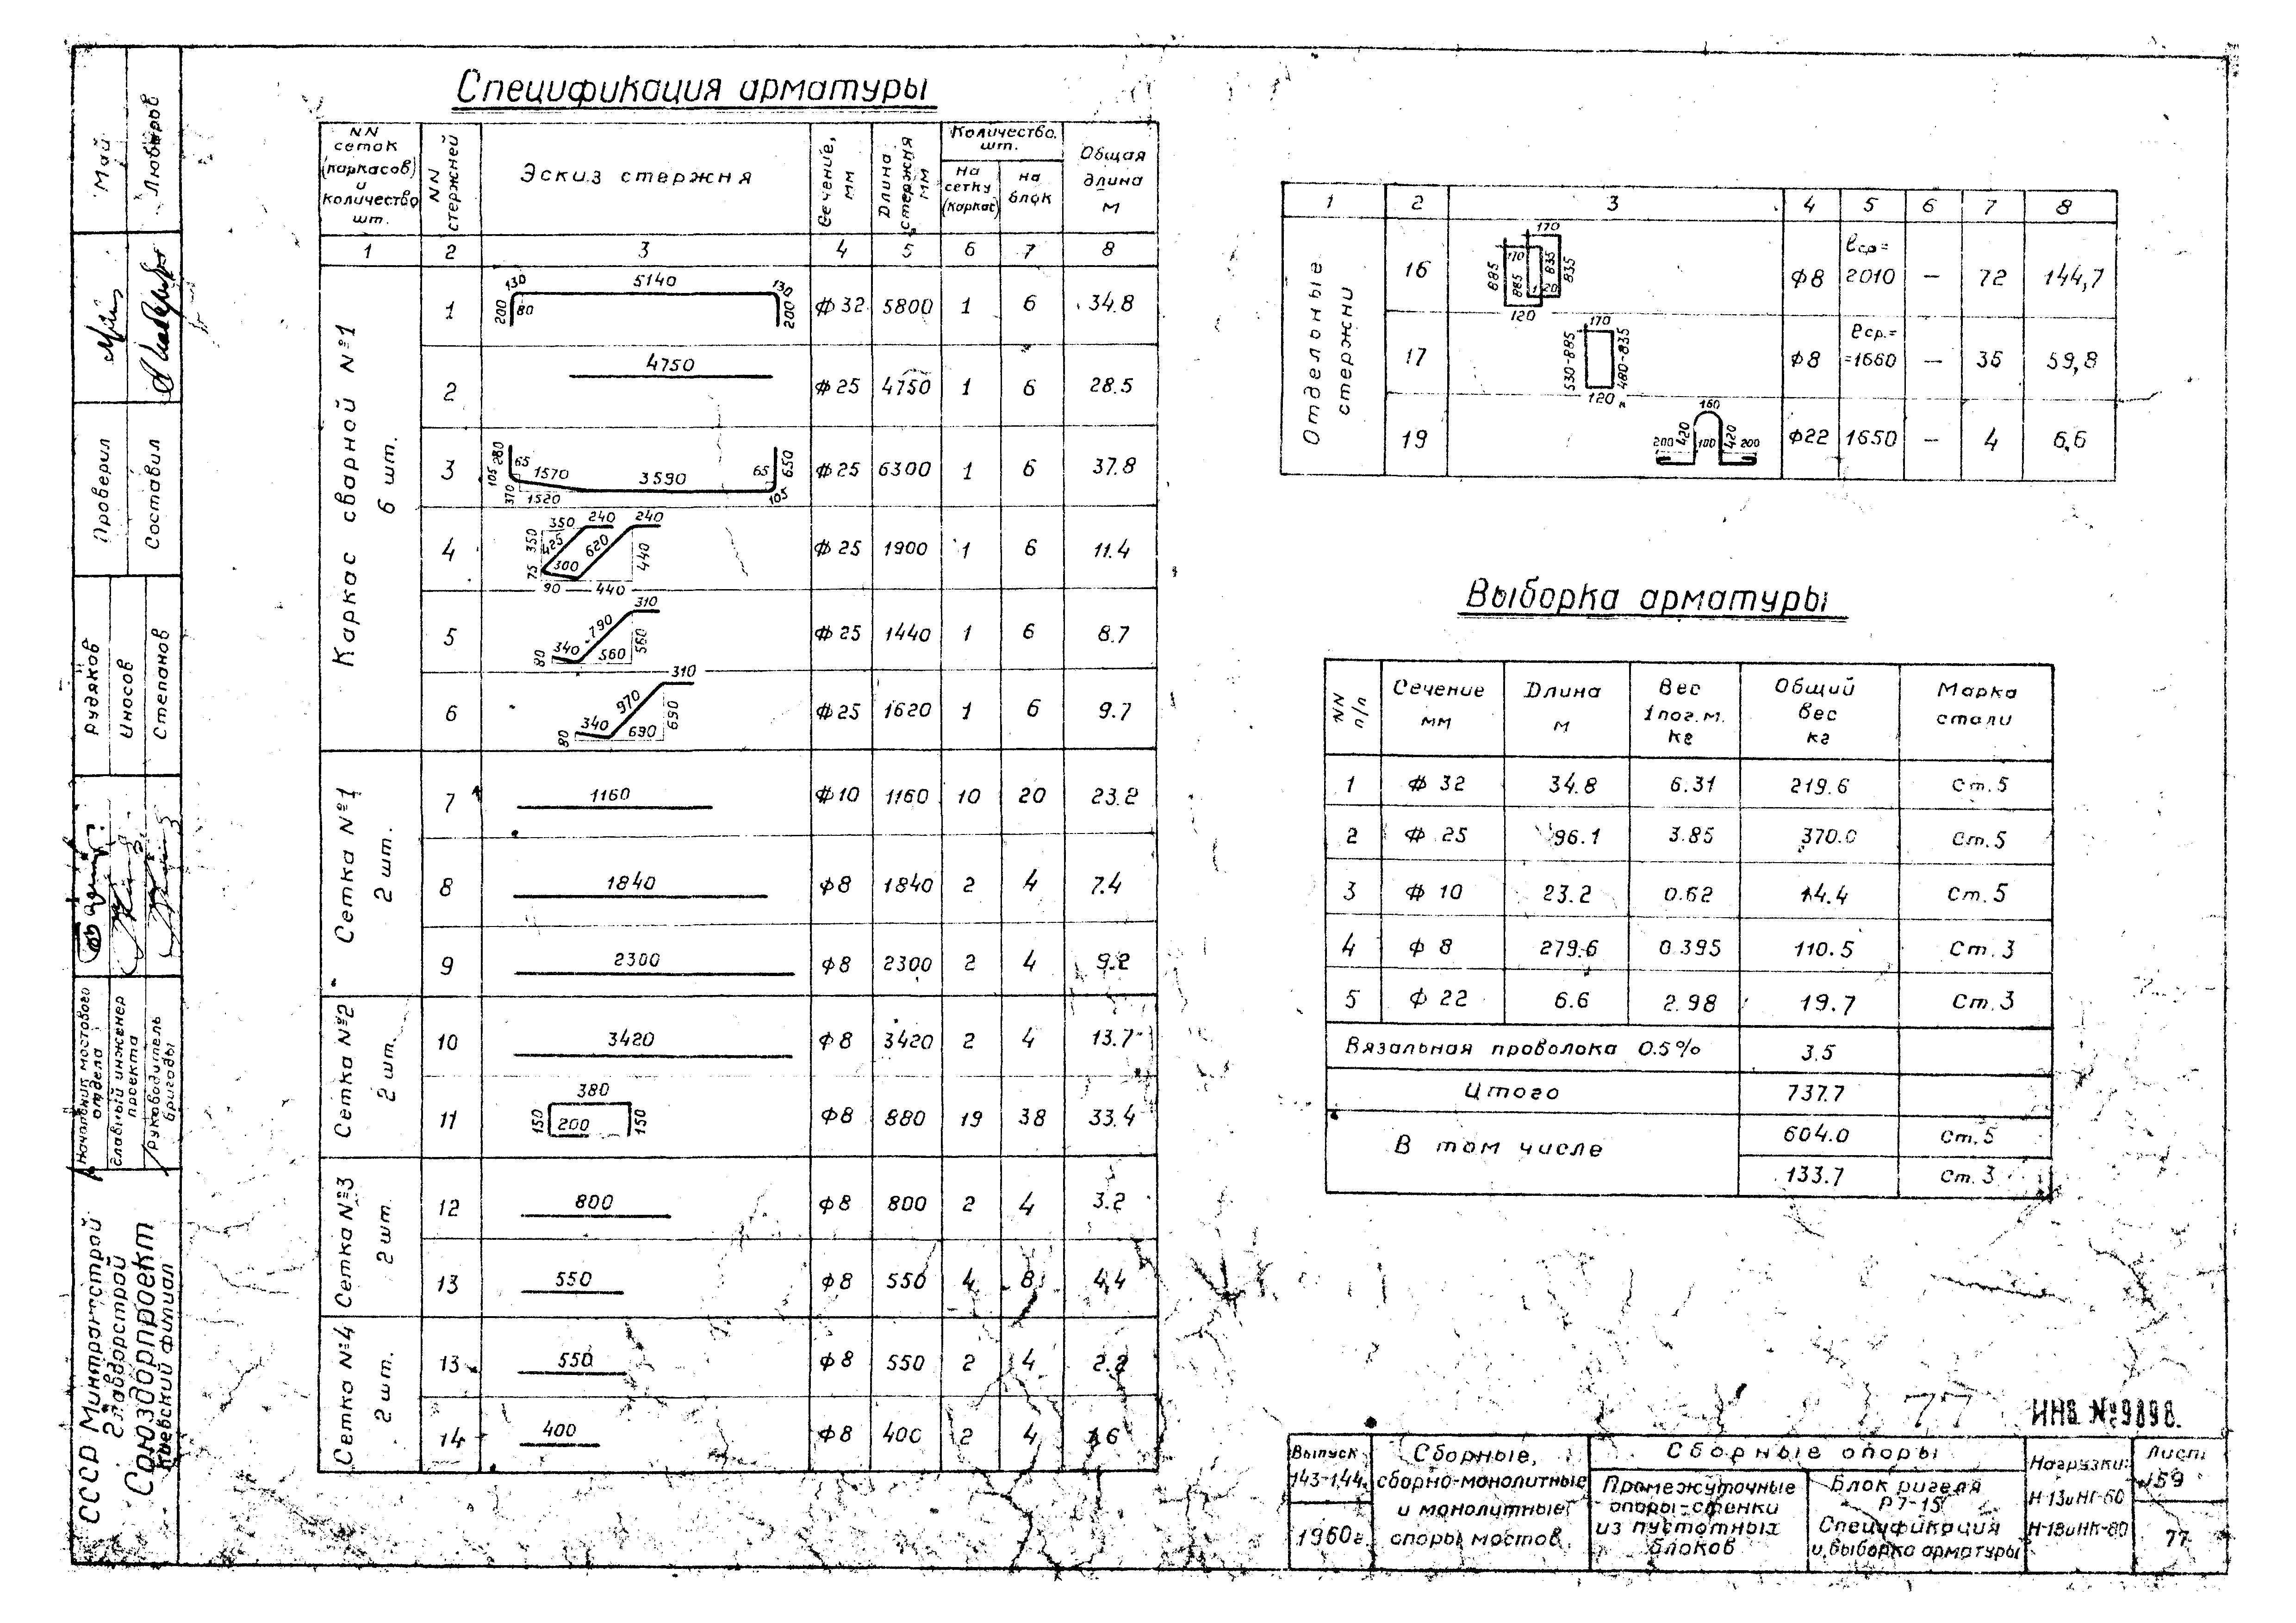 Спецификация арматуры
NN сеток (каркасов) и количество шт.
NN стержней
Эскиз стержня
Сечение, мм
Длина стержня мм
Количество, шт.
На сетку (каркас)
на блок
Общая длина м
1 2 3 4 5 6 7 8
Каркас сварной №1
6 шт.
1 200 130 80 5140 130 200 Ф 32 5800 1 6 34.8
2 4750 Ф 25 4750 1 6 28.5
3 280 105 65 370 1570 1520 3590 65 650 105 Ф 25 6300 1 6 37.8
4 350 240 240 350 425 620 440 75 300 90 440 Ф 25 1900 1 6 11.4
5 310 790 560 340 560 80 Ф 25 1440 1 6 8.7
6 310 970 690 340 690 80 Ф 25 1620 1 6 9.7
Сетка №1
2 шт.
7 1160 Ф 10 1160 10 20 23.2
8 1840 ф 8 1840 2 4 7.4
9 2300 ф 8 2300 2 4 9.2
Сетка №2
2 шт.
10 3420 ф 8 3420 2 4 13.7
11 380 150 200 150 ф 8 880 19 38 33.4
Сетка №3
2 шт.
12 800 ф 8 800 2 4 3.2
13 550 ф 8 550 4 8 4.4
Сетка №4
2 шт.
13 550 ф 8 550 2 4 2.2
14 400 ф 8 400 2 4 1.6
1 2 3 4 5 6 7 8
Отдельные стержни
16 170 885 170 835 835 885 120 120 ф8 ℓср= 2010 — 72 144,7
17 170 530-885 480-835 120 ф8 ℓср.= =1660 — 36 59,8
19 160 200 420 100 420 200 ф22 1650 — 4 6,6
Выборка арматуры
NN п/п
Сечение мм
Длина м
Вес 1 пог. м. кг
Общий вес кг
Марка стали
1 Ф 32 34.8 6.31 219.6 Ст.5
2 Ф 25 96.1 3.85 370.0 Ст.5
3 Ф 10 23.2 0.62 14.4 Ст.5
4 ф 8 279.6 0.395 110.5 Ст.3
5 ф 22 6.6 2.98 19.7 Ст.3
Вязальная проволока 0.5% 3.5
Итого 737.7
В том числе 604.0 Ст.5
133.7 Ст.3
77
ИНВ №9898.
Выпуск
143-144
1960г.
Сборные,
сборно-монолитные
и монолитные
опоры мостов
Сборные опоры
Промежуточные
опоры-стенки
из пустотных
блоков
Блок ригеля
Р7-15
Спецификация
и выборка арматуры
Нагрузки:
Н-13иНГ-60
Н-18иНК-80
Лист
159
77
Май
Любяров
Проверил
Составил
Рудяков
Иносов
Степанов
Начальник мостового отдела
Главный инженер проекта
Руководитель бригады
СССР Минтрансстрой
Главдорстрой
Союздорпроект
Киевский филиал